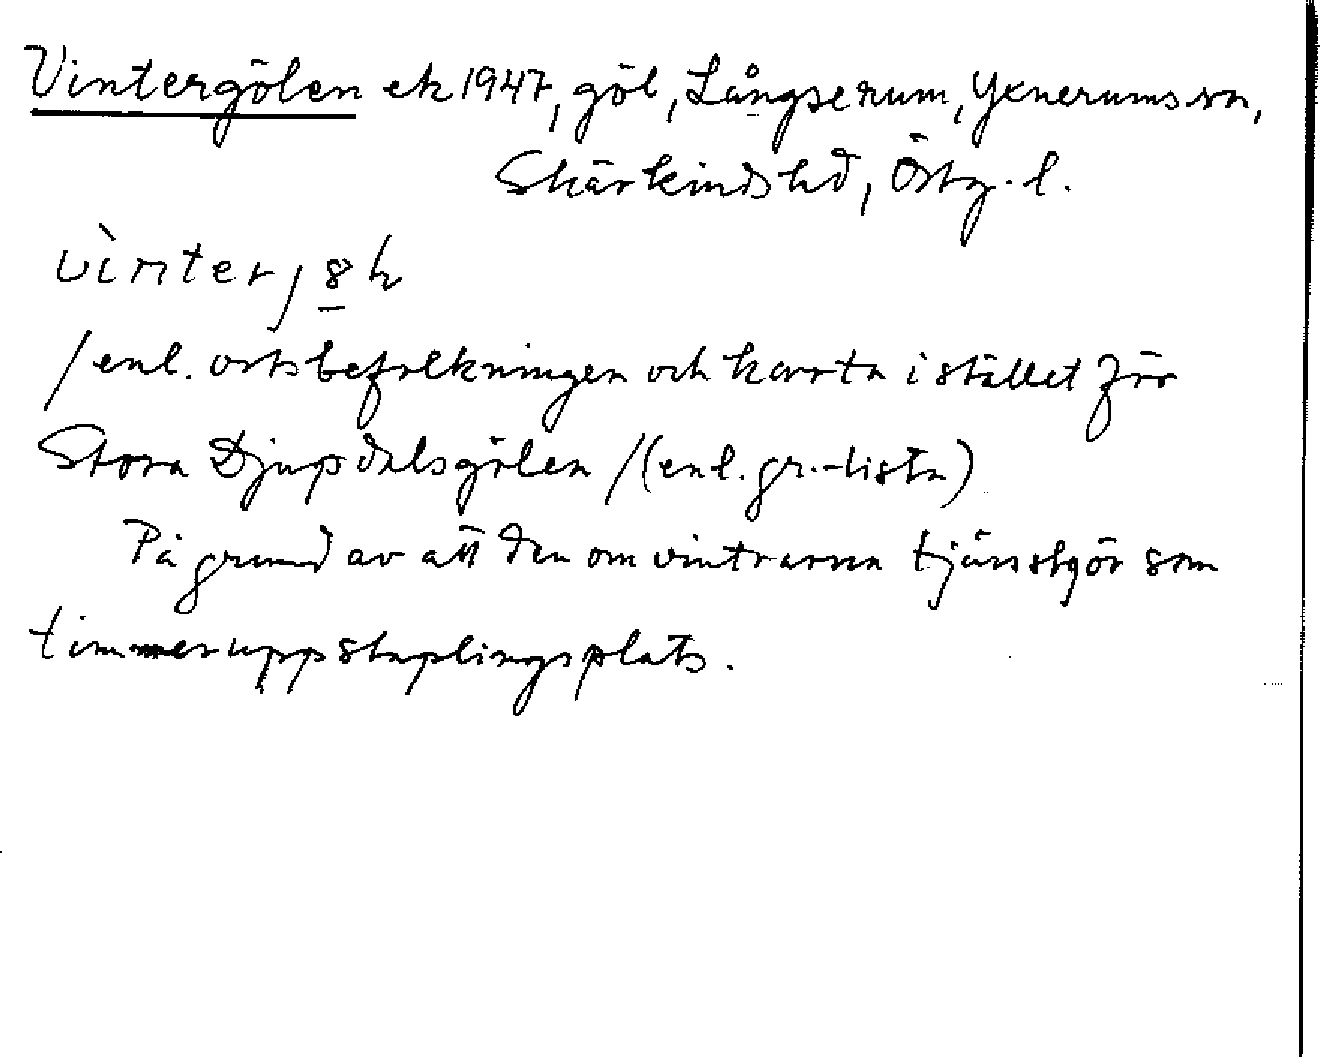 Vintergölen ek 1947, göl, Långserum, Yxnerums sn,
Skärkinds hd, Östg. l.
vìnterȷ8h
/enl. ortsbefolkningen och karta i stället för
Stora Djupdalsgölen /(enl. gr.-lista)
På grund av att den om vintrarna tjänstgör som
timmeruppstaplingsplats.